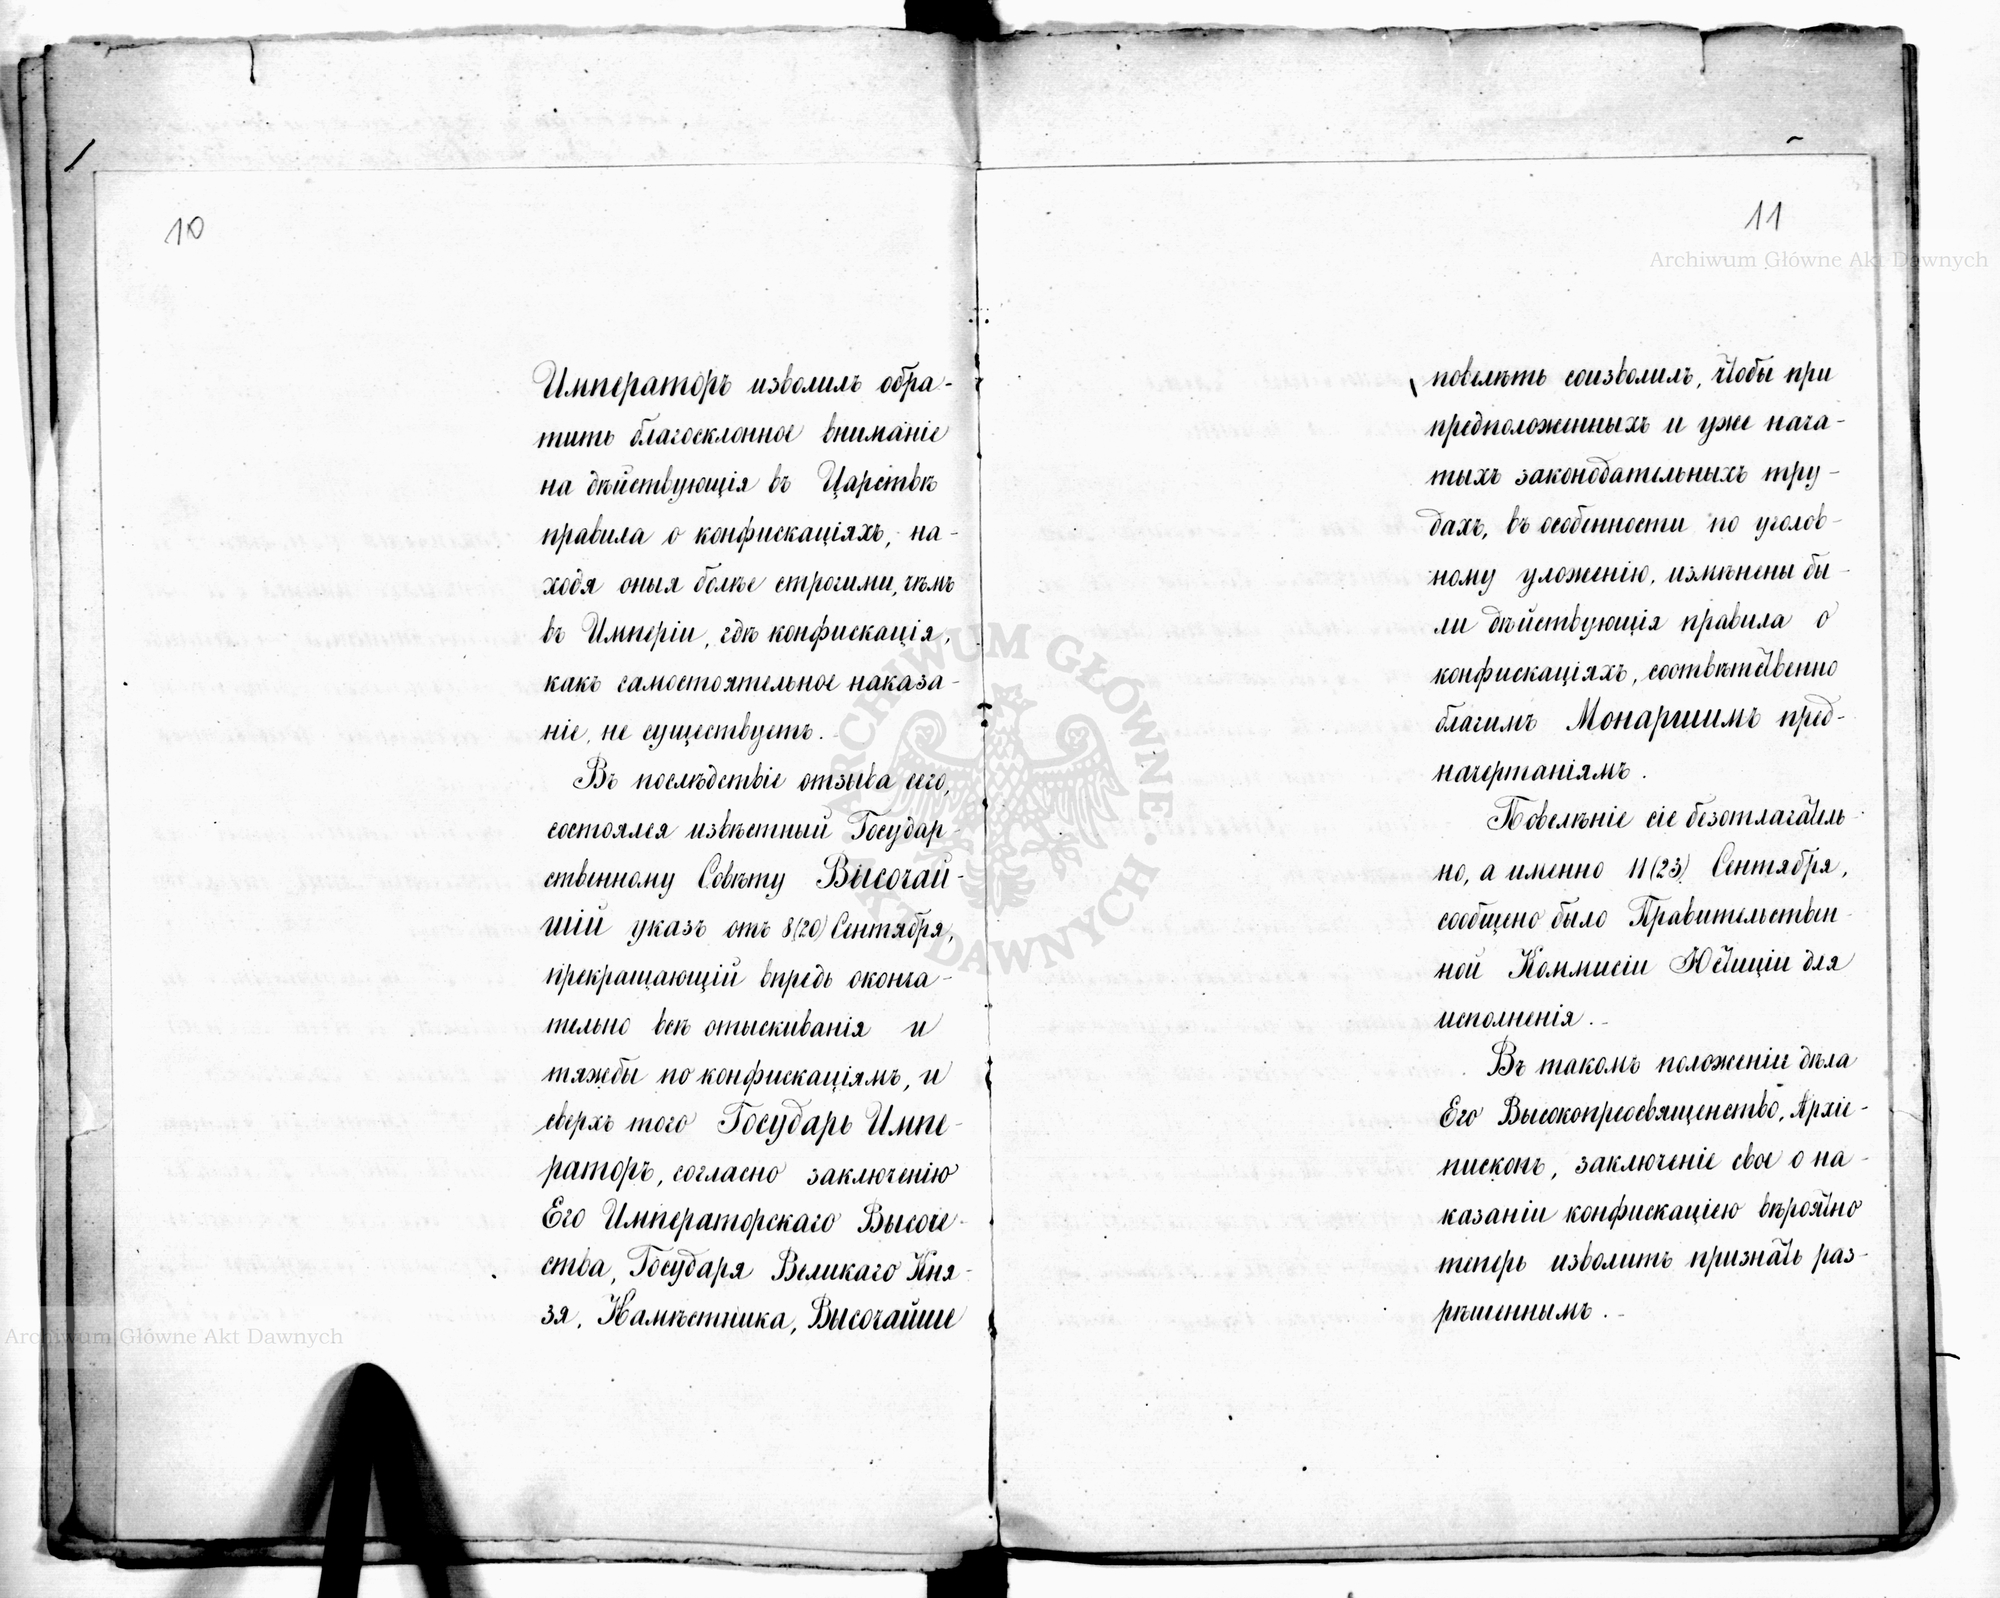 10
Императоръ изволилъ обра-
тить благосклонное вниманіе
на дѣйствующія въ Царствѣ
правила о конфискаціяхъ, на-
ходя оныя болѣе строгими, чѣмъ
въ Имперіи, гдѣ конфискація,
какъ самостоятельное наказа-
ніе, не существуетъ.
Въ послѣдствіе отзыва сего,
состоялся извѣстный Государ-
ственному Совѣту Высочай-
шій указъ отъ 8(20) Сентября,
прекращающій впредь оконча-
тельно всѣ отыскиванія и
тяжбы по конфискаціямъ, и
сверхъ того Государь Импе-
раторъ, согласно заключенію
Его Императорскаго Высоче-
ства, Государя Великаго Кня-
зя, Намѣстника, Высочайше
11
Archiwum Główne Akt Dawnych
повелѣть соизволилъ, чтобы при
предположенныхъ и уже нача-
тыхъ законодательныхъ тру-
дахъ, въ особенности по уголов-
ному уложенію, измѣнены бы-
ли дѣйствующія правила о
конфискаціяхъ, соотвѣтственно
благимъ Монаршимъ пред-
начертаніямъ.
Повелѣніе сіе безотлагатель-
но, а именно 11(23) Сентября,
сообщено было Правительствен-
ной Коммисіи Юстиціи для
исполненія.
Въ такомъ положеніи дѣла
Его Высокопреосвященство, Архіе-
пископъ, заключеніе свое о на-
казаніи конфискаціею вѣроятно
теперь изволитъ признать раз-
рѣшеннымъ.
ARCHIWUM GŁÓWNE AKT DAWNYCH
Archiwum Główne Akt Dawnych